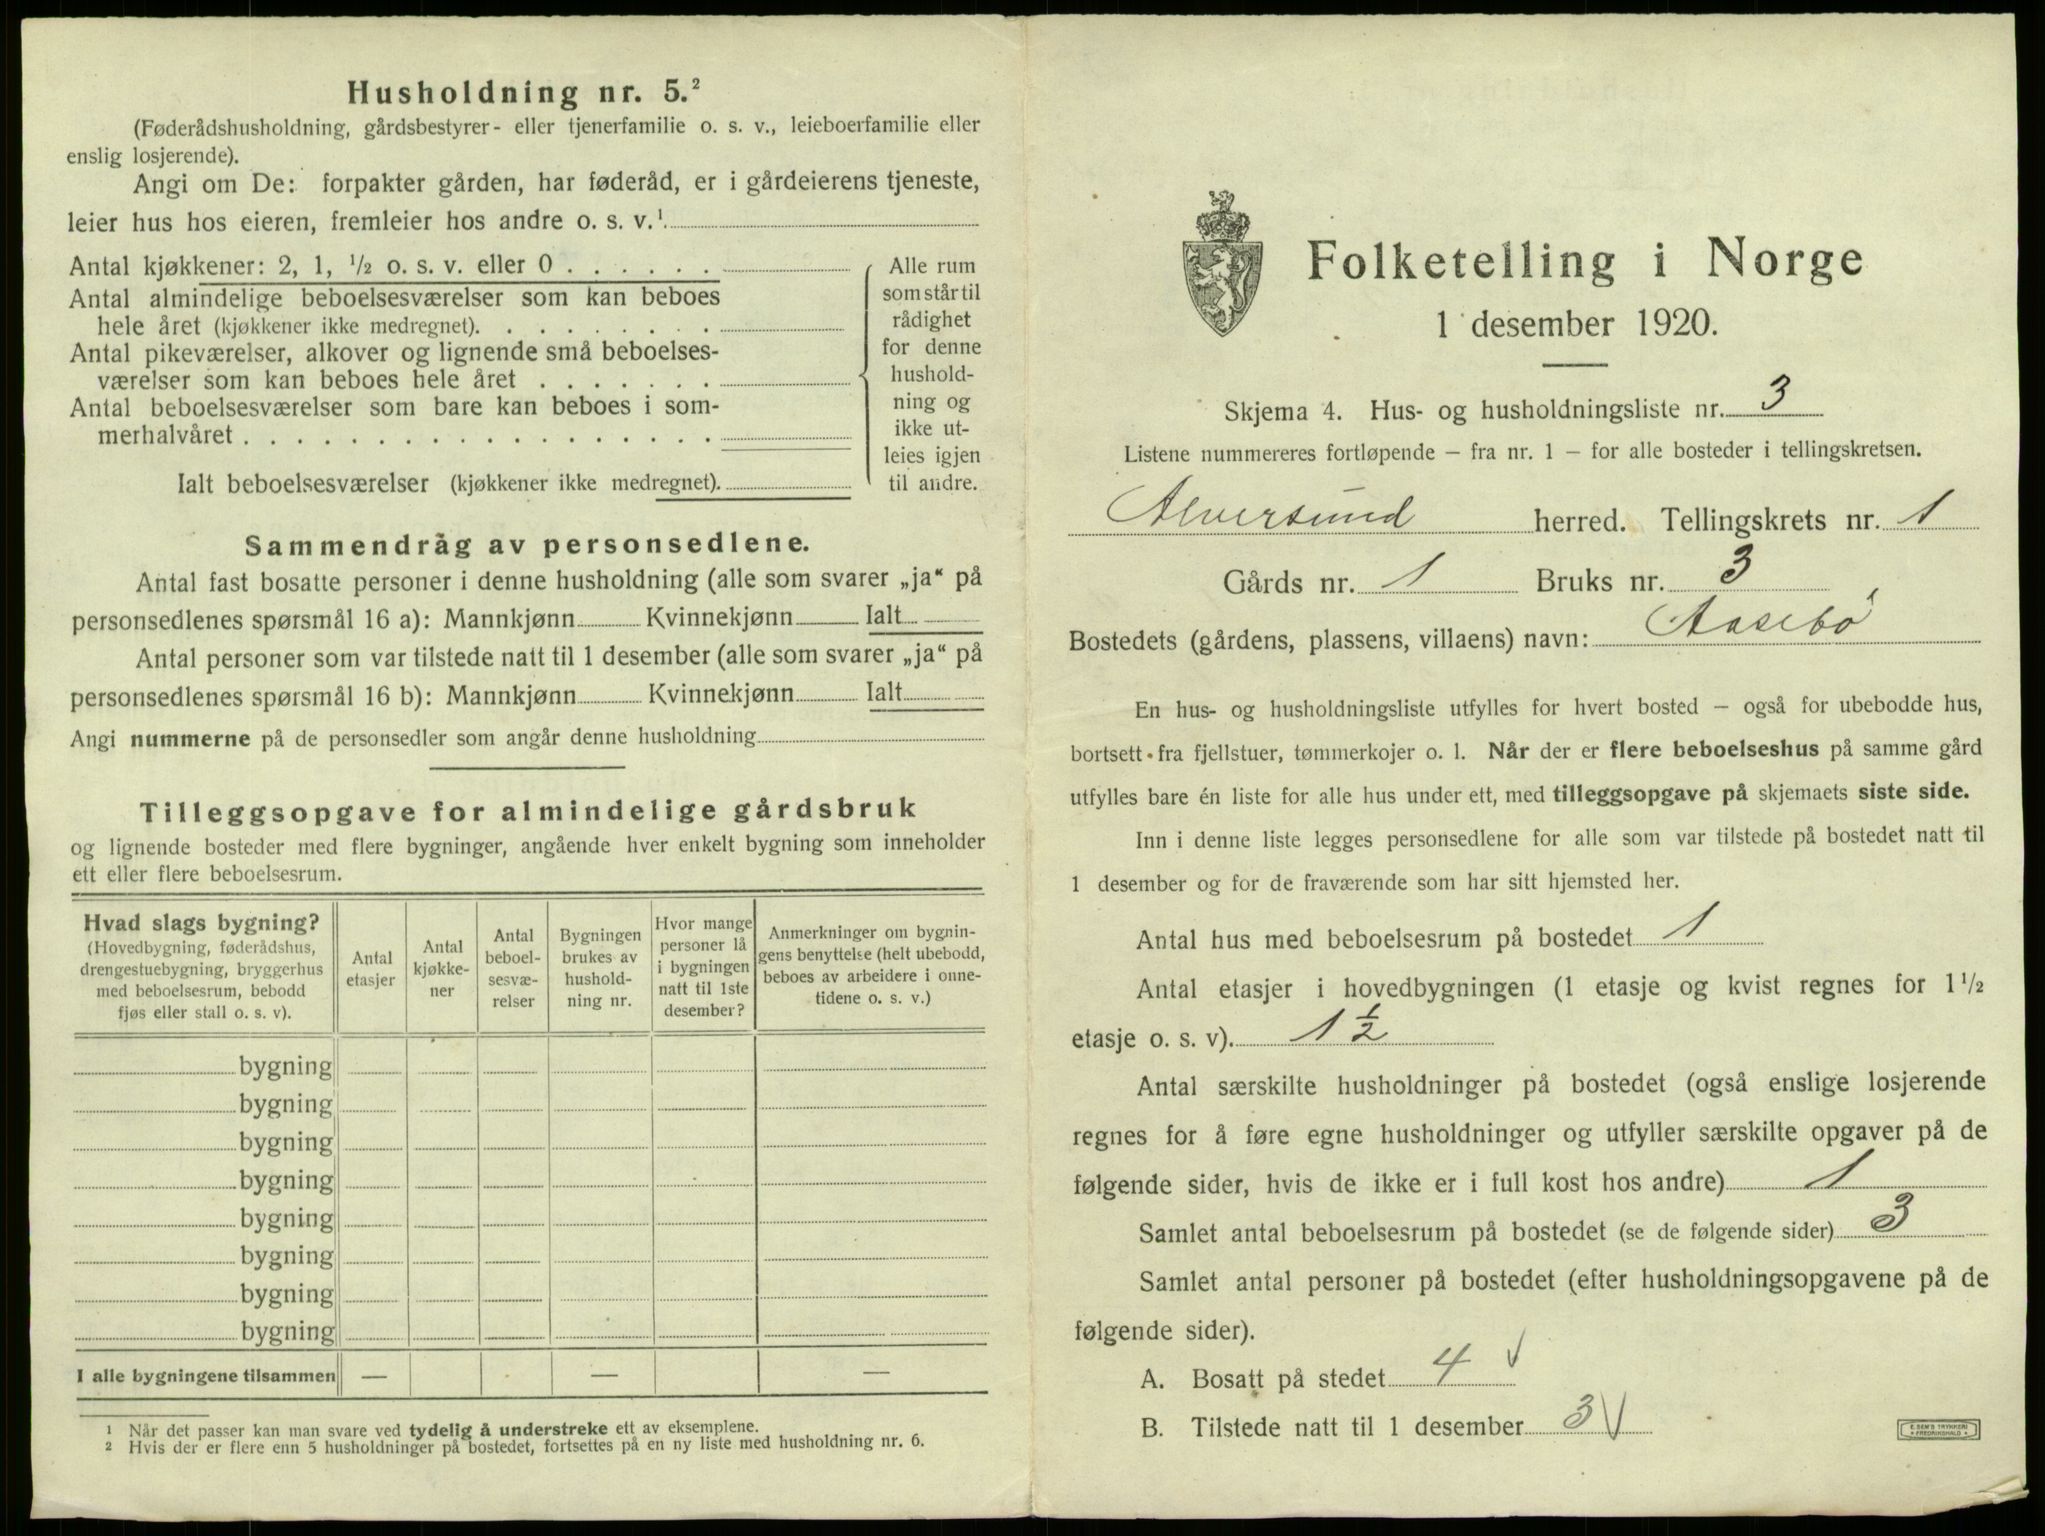 Husholdning nr. 5.²
(Føderådshusholdning, gårdsbestyrer- eller tjenerfamilie o. s. v., leieboerfamilie eller
enslig losjerende).
Angi om De: forpakter gården, har føderåd, er i gårdeierens tjeneste,
leier hus hos eieren, fremleier hos andre o. s. v.¹
Antal kjøkkener: 2, 1, ½ o. s. v. eller 0
Antal almindelige beboelsesværelser som kan beboes
hele året (kjøkkener ikke medregnet).
Antal pikeværelser, alkover og lignende små beboelses-
værelser som kan beboes hele året
Antal beboelsesværelser som bare kan beboes i som-
merhalvåret
Ialt beboelsesværelser (kjøkkener ikke medregnet).
Alle rum
som står til
rådighet
for denne
hushold-
ning og
ikke ut-
leies igjen
til andre.
Sammendrag av personsedlene.
Antal fast bosatte personer i denne husholdning (alle som svarer „ja“ på
personsedlenes spørsmål 16 a): Mannkjønn Kvinnekjønn Ialt
Antal personer som var tilstede natt til 1 desember (alle som svarer „ja“ på
personsedlenes spørsmål 16 b): Mannkjønn Kvinnekjønn Ialt
Angi nummerne på de personsedler som angår denne husholdning
Tilleggsopgave for almindelige gårdsbruk
og lignende bosteder med flere bygninger, angående hver enkelt bygning som inneholder
ett eller flere beboelsesrum.
Hvad slags bygning?
(Hovedbygning, føderådshus,
drengestuebygning, bryggerhus
med beboelsesrum, bebodd
fjøs eller stall o. s. v).
Antal
etasjer
Antal
kjøkke-
ner
Antal
beboel-
sesvæ-
relser
Bygningen
brukes av
hushold-
ning nr.
Hvor mange
personer lå
i bygningen
natt til 1ste
desember?
Anmerkninger om bygnin-
gens benyttelse (helt ubebodd,
beboes av arbeidere i onne-
tidene o. s. v.)
bygning
bygning
bygning
bygning
bygning
bygning
bygning
bygning
I alle bygningene tilsammen — — —
¹ Når det passer kan man svare ved tydelig å understreke ett av eksemplene.
² Hvis der er flere enn 5 husholdninger på bostedet, fortsettes på en ny liste med husholdning nr. 6.
Folketelling i Norge
1 desember 1920.
Skjema 4. Hus- og husholdningsliste nr. 3
Listene nummereres fortløpende – fra nr. 1 – for alle bosteder i tellingskretsen.
Alversund herred. Tellingskrets nr. 1
Gårds nr. 1 Bruks nr. 3
Bostedets (gårdens, plassens, villaens) navn: Aasebø
En hus- og husholdningsliste utfylles for hvert bosted – også for ubebodde hus,
bortsett fra fjellstuer, tømmerkojer o. l. Når der er flere beboelseshus på samme gård
utfylles bare én liste for alle hus under ett, med tilleggsopgave på skjemaets siste side.
Inn i denne liste legges personsedlene for alle som var tilstede på bostedet natt til
1 desember og for de fraværende som har sitt hjemsted her.
Antal hus med beboelsesrum på bostedet 1
Antal etasjer i hovedbygningen (1 etasje og kvist regnes for 1½
etasje o. s. v). 1½
Antal særskilte husholdninger på bostedet (også enslige losjerende
regnes for å føre egne husholdninger og utfyller særskilte opgaver på de
følgende sider, hvis de ikke er i full kost hos andre) 1
Samlet antal beboelsesrum på bostedet (se de følgende sider) 3
Samlet antal personer på bostedet (efter husholdningsopgavene på de
følgende sider).
A. Bosatt på stedet 4 √
B. Tilstede natt til 1 desember 3 √
E. SEM'S TRYKKERI
FREDRIKSHALD